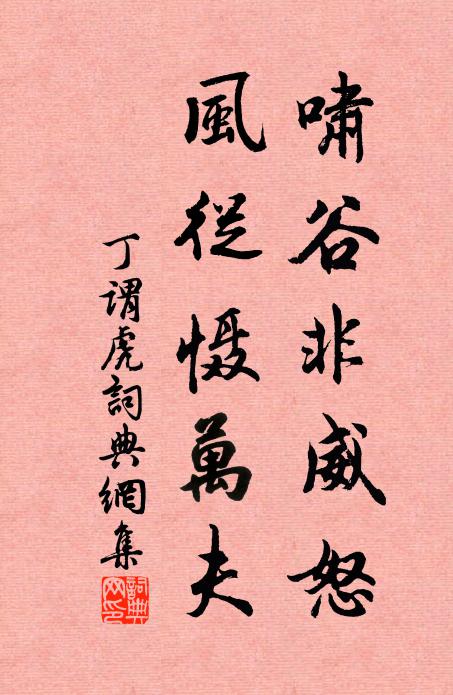 嘯谷非威怒
風從慑萬夫
丁謂虎詞典網集
詞典
网印